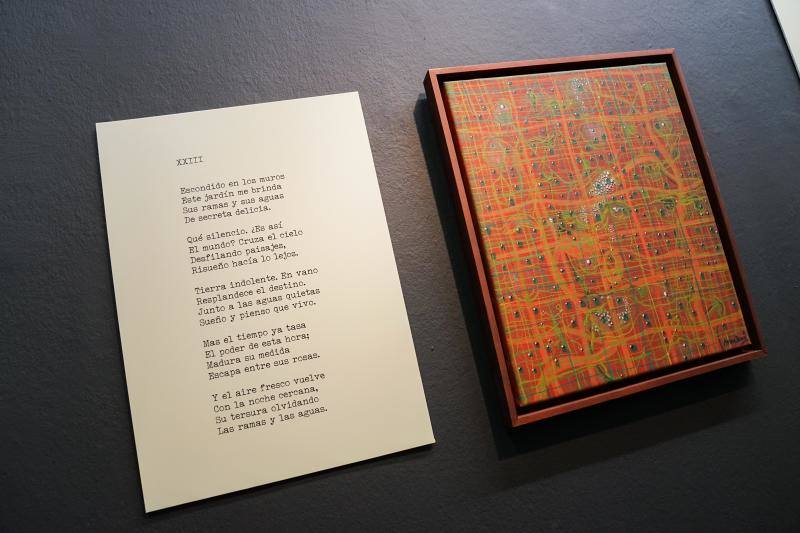 XXIII
Escondido en los muros
Este jardín me brinda
Sus ramas y sus aguas
De secreta delicia.
Qué silencio. ¿Es así
El mundo? Cruza el cielo
Desfilando paisajes,
Risueño hacía lo lejos.
Tierra indolente. En vano
Resplandece el destino.
Junto a las aguas quietas
Sueño y pienso que vivo.
Mas el tiempo ya tasa
El poder de esta hora;
Madura su medida
Escapa entre sus rosas.
Y el aire fresco vuelve
Con la noche cercana,
Su tersura olvidando
Las ramas y las aguas.